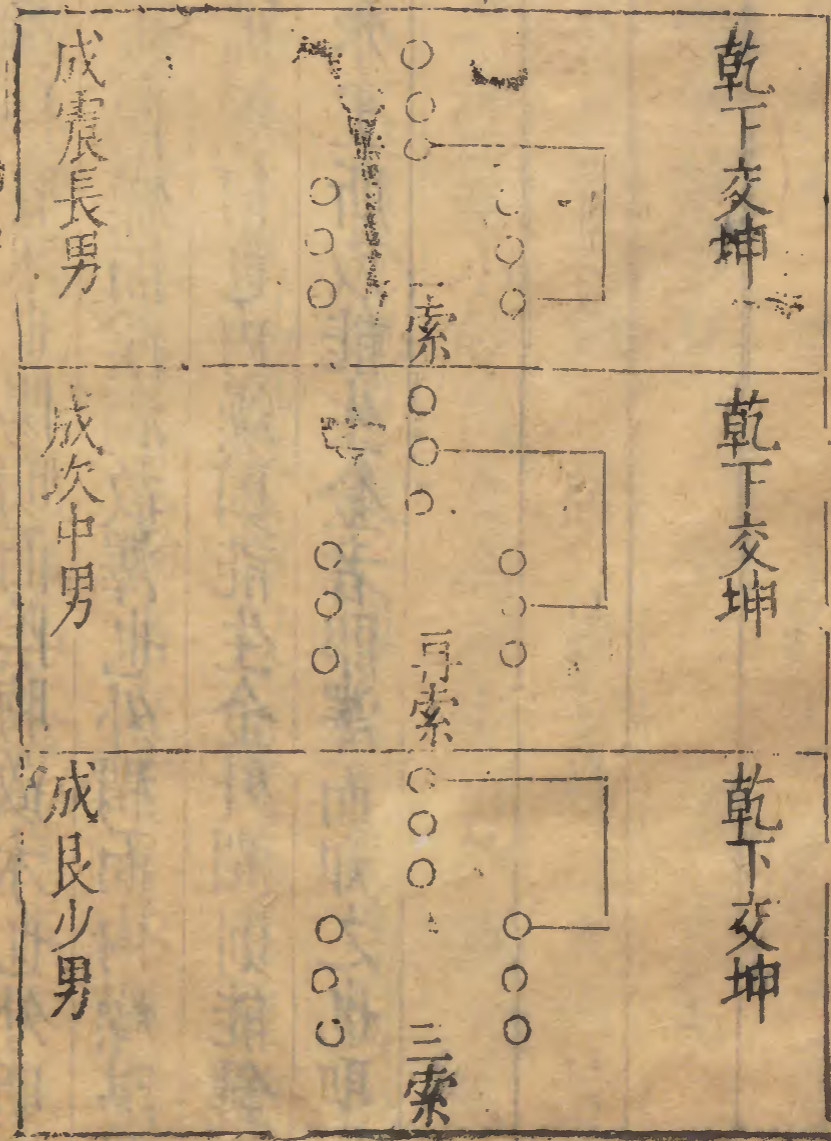 乾下交坤
一索
成震長男
乾下交坤
再索
成次中男
乾下交坤
三索
成艮少男